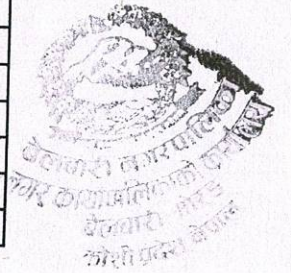 बेलबारी नगरपालिका
नगर कार्यपालिकाको कार्यालय
बेलबारी मोरङ
कोशी प्रदेश नेपाल